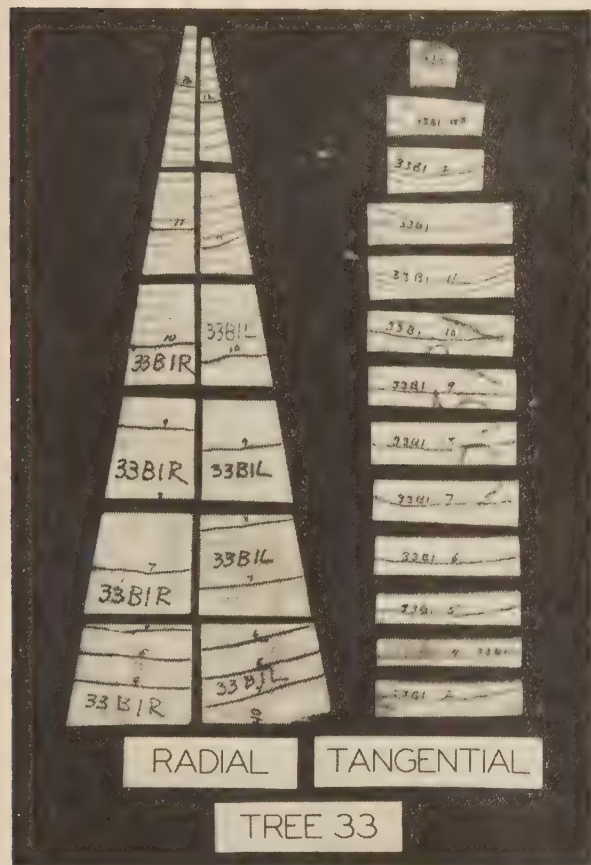 12
12
11
11
10
33B1R
33B1L
10
9
33B1R
9
33B1L
8
7
33B1R
8
33B1L
7
33B1R
33B1L
33B1
33B1 2
33B1
33B1 11
33B1 10
33B1 9
33B1 8
33B1 7
33B1 6
33B1 5
4 33B1
33B1 2
RADIAL
TANGENTIAL
TREE 33